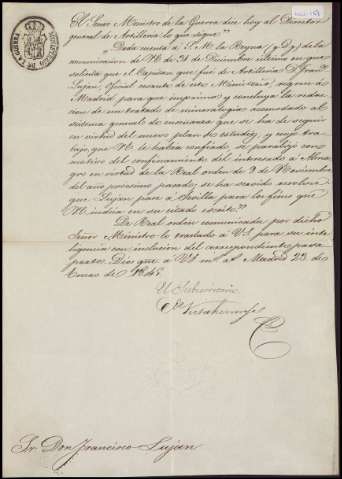 MINISTERIO DE LA GUERRA
El Señor Ministro de la Guerra dice hoy al Director
general de Artilleria lo que sigue"
"Dada cuenta á S. M. la Reyna (q. D. g.) de la
comunicacion de V.E. de 31 de Diciembre último en que
solicita que el Capitan que fue de Artilleria D. Franco
Lujan, oficial cesante de este Ministerio, regrese á
Madrid para que imprima y concluya la redac
cion de un tratado de mineralogia acomodado al
sistema general de enseñanza que se ha de seguir
en virtud del nuevo plan de estudios, y cuyo tra-
bajo, que V.E. le habia confiado, se paralizó con
motivo del confinamiento del interesado á
en virtud de la Real orden de 2 de Noviembre
del año procsimo pasado; se ha servido resolver
que Lujan pase á Sevilla para los fines que
V.E. indica en su citado escrito."
De Real orden comunicada por dicho
Señor Ministro lo traslado á VS. para su inte
ligencia con inclusion del correspondiente pasa
porte. Dios gue á VS. m. a. Madrid 23 de
Enero de 1846.
El Subsecretario
Sr. Don Francisco Lujan